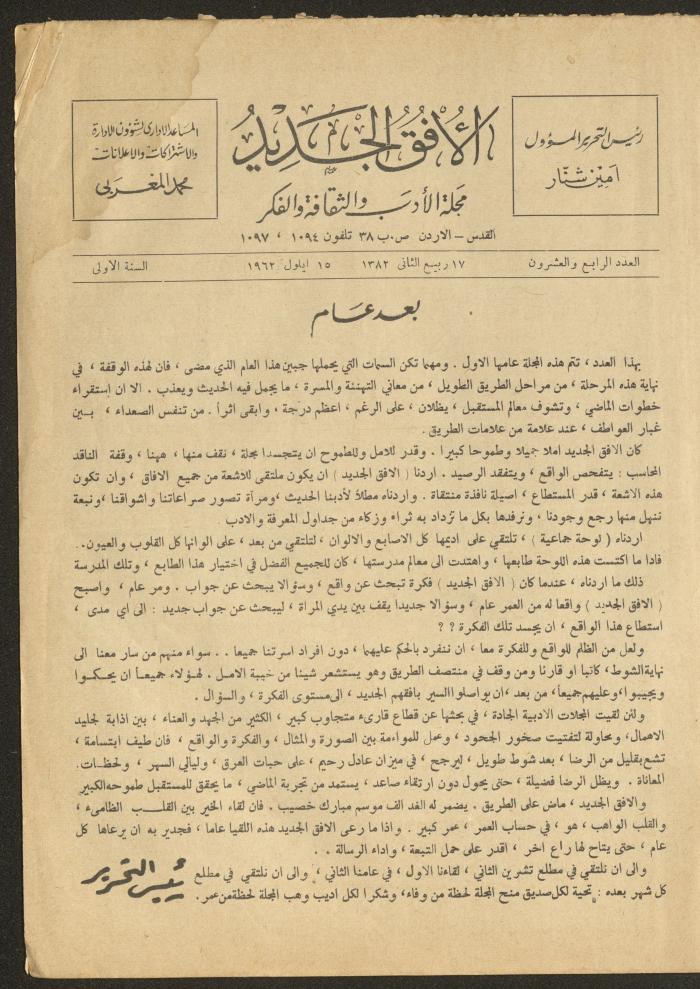 رئيس التحرير المسؤول
امين شنار
الأفق الجديد
مجلة الأدب والثقافة والفكر
القدس - الاردن ص.ب ٣٨ تلفون ١٠٩٤ ، ١٠٩٧
المساعد الاداري لشؤون الادارة
والاشتراكات والاعلانات
محمد المغربي
العدد الرابع والعشرون ١٧ ربيع الثاني ١٣٨٢ ١٥ ايلول ١٩٦٢ السنة الاولى
بعد عام
بهذا العدد ، تتم هذه المجلة عامها الاول . ومهما تكن السمات التي يحملها جبين هذا العام الذي مضى ، فان لهذه الوقفة ، في
نهاية هذه المرحلة ، من مراحل الطريق الطويل ، من معاني التهنئة والمسرة ، ما يجمل فيه الحديث ويعذب . الا ان استقراء
خطوات الماضي ، وتشوف معالم المستقبل ، يظلان ، على الرغم ، اعظم درجة ، وابقى اثراً . من تنفس الصعداء ، بــين
غبار العواطف ، عند علامة من علامات الطريق .
كان الافق الجديد املا جميلا وطموحا كبيرا . وقدر للامل وللطموح ان يتجسدا مجلة ، نقف منها ، ههنا ، وقفة الناقد
المحاسب : يتفحص الواقع ، ويتفقد الرصيد . اردنا ( الافق الجديد ) ان يكون ملتقى للاشعة من جميع الافاق ، وان تكون
هذه الاشعة ، قدر المستطاع ، اصيلة نافذة منتقاة . واردناه مطلاً لأدبنا الحديث ، ومرآة تصور صراعاتنا واشواقنا ، ونبعة
ننهل منها رجع وجودنا ، ونرفدها بكل ما تزداد به ثراء وزكاء من جداول المعرفة والادب .
اردناه ( لوحة جماعية ) ، تلتقي على اديمها كل الاصابع والالوان ، لتلتقي من بعد ، على الوانها كل القلوب والعيون .
فاذا ما اكتست هذه اللوحة طابعها ، واهتدت الى معالم مدرستها ، كان للجميع الفضل في اختيار هذا الطابع ، وتلك المدرسة
ذلك ما اردناه ، عندما كان ( الافق الجديد ) فكرة تبحث عن واقع ، وسؤالا يبحث عن جواب . ومر عام ، واصبح
( الافق الجديد ) واقعا له من العمر عام ، وسؤالا جديدا يقف بين يدي المراة ، ليبحث عن جواب جديد : الى اي مدى ،
استطاع هذا الواقع ، ان يجسد تلك الفكرة ؟ ؟
ولعل من الظلم للواقع وللفكرة معا ، ان ننفرد بالحكم عليهما ، دون افراد اسرتنا جميعا . . سواء منهم من سار معنا الى
نهاية الشوط ، كاتبا او قارئا ومن وقف في منتصف الطريق وهو يستشعر شيئا من خيبة الامل . لهؤلاء جميعاً ان يحكمــوا
ويجيبوا ، وعليهم جميعاً ، من بعد ، ان يواصلوا السير بافقهم الجديد ، الى مستوى الفكرة ، والسؤال .
ولئن لقيت المجلات الادبية الجادة ، في بحثها عن قطاع قارىء متجاوب كبير ، الكثير من الجهد والعناء ، بين اذابة لجليد
الاهمال ، ومحاولة لتفتيت صخور الجحود ، وعمل للمواءمة بين الصورة والمثال ، والفكرة والواقع ، فان طيف ابتسامة ،
تشع بقليل من الرضا ، بعد شوط طويل ، ليرجح ، في ميزان عادل رحيم ، على حبات العرق ، وليالي السهر ، ولحظــات
المعاناة . ويظل الرضا فضيلة ، حتى يحول دون ارتقاء صاعد ، يستمد من تجربة الماضي ، ما يحقق للمستقبل طموحه الكبير
والافق الجديد ، ماض على الطريق . يضمر له الغد الف موسم مبارك خصيب . فان لقاء الخير بين القلــب الظامىء ،
والقلب الواهب ، هو ، في حساب العمر ، عمر كبير . واذا ما رعى الافق الجديد هذه اللقيا عاما ، فجدير به ان يرعاها كل
عام ، حتى يتاح لها راع اخر ، اقدر على حمل التبعة ، واداء الرسالة . .
والى ان نلتقي في مطلع تشرين الثاني ، لقاءنا الاول ، في عامنا الثاني ، والى ان نلتقي في مطلع
كل شهر بعده : تحية لكل صديق منح المجلة لحظة من وفاء ، وشكرا لكل اديب وهب المجلة لحظة من عمر .
رئيس التحرير